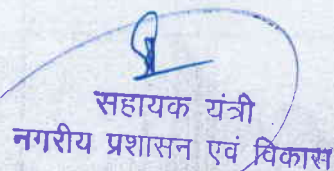 सहायक यंत्री
नगरीय प्रशासन एवं विकास